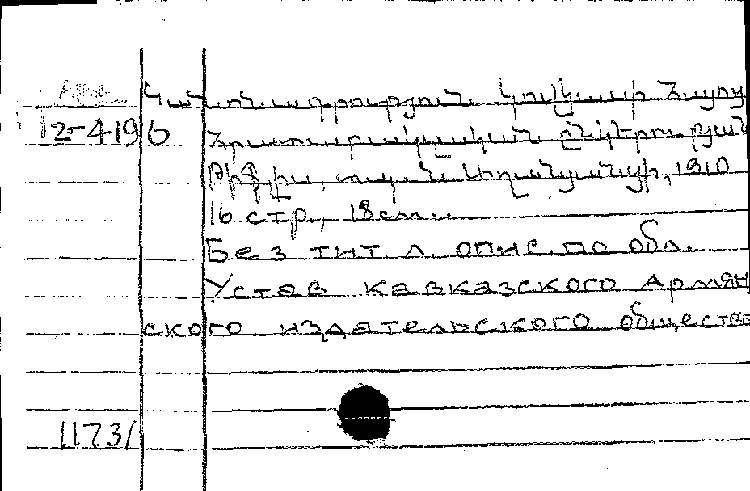 Կանոնադրություն Կովկասի Հայոց
12-4196 Հրատարակչական Ընկերության
Թիֆլիս, տպ. Ն. Աղանյանցի, 1910
16 стр., 18 см.
Без тит. л. опис. по обл.
Устав Кавказского Армян
ского издательского общества
11731